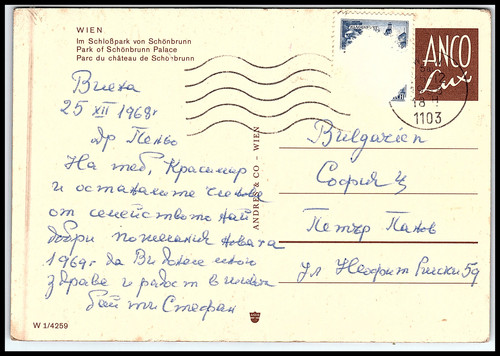 WIEN
Im Schloßpark von Schönbrunn
Park of Schönbrunn Palace
Parc du château de Schönbrunn
Виена
25 XII 1968г
др Пеньо
На теб, Красимир
и останалите членове
от семейството най
добри пожелания новата
1969г да Ви донесе много
здраве и радост
бай ти Стефан
W 1/4259
ANDRES & CO - WIEN
ANCO
Lux
18
1103
Bulgarien
София Ц
Петър Панов
ул Неофит Рилски 59